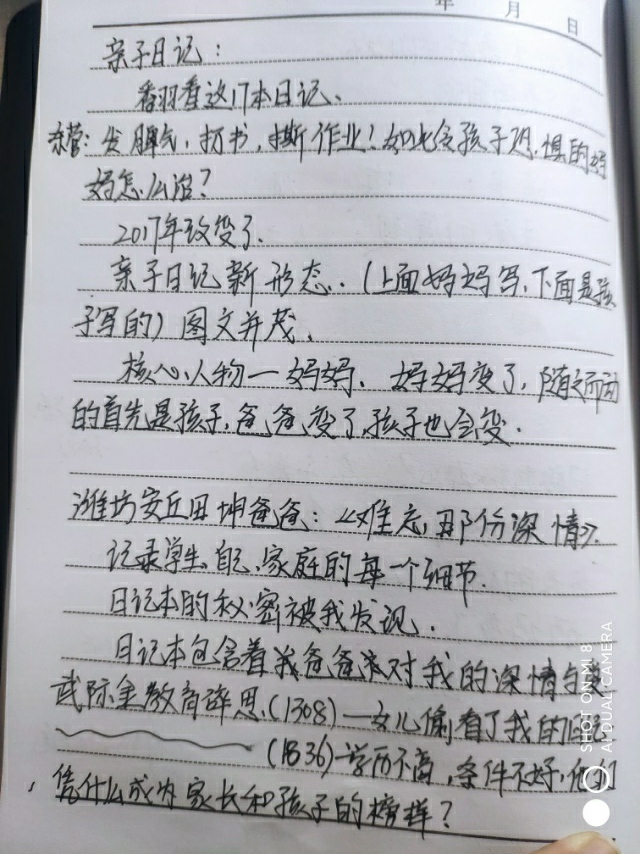 年 月 日
亲子日记：
看羽看这17本日记、
发脾气，打书，撕作业！如此令孩子恐惧的妈
妈怎么治？
2017年改变了、
亲子日记新形态..（上面妈妈写，下面是孩
子写的）图文并茂、
核心人物一妈妈、妈妈变了，随之而动
的首先是孩子，爸爸变了，孩子也会变．
潍坊安丘田坤爸爸：《难忘，那份深情》．
记录学生、自己、家庭的每一个细节．
日记本的秘密被我发现．
日记本包含着我爸爸对我的深情与爱
武际金教育译思、（1308）一女儿偷看了我的日记
（1336）一学历不高，条件不好，他们
凭什么成为家长和孩子的榜样？
SHOT ON MI 8
AI DUAL CAMERA